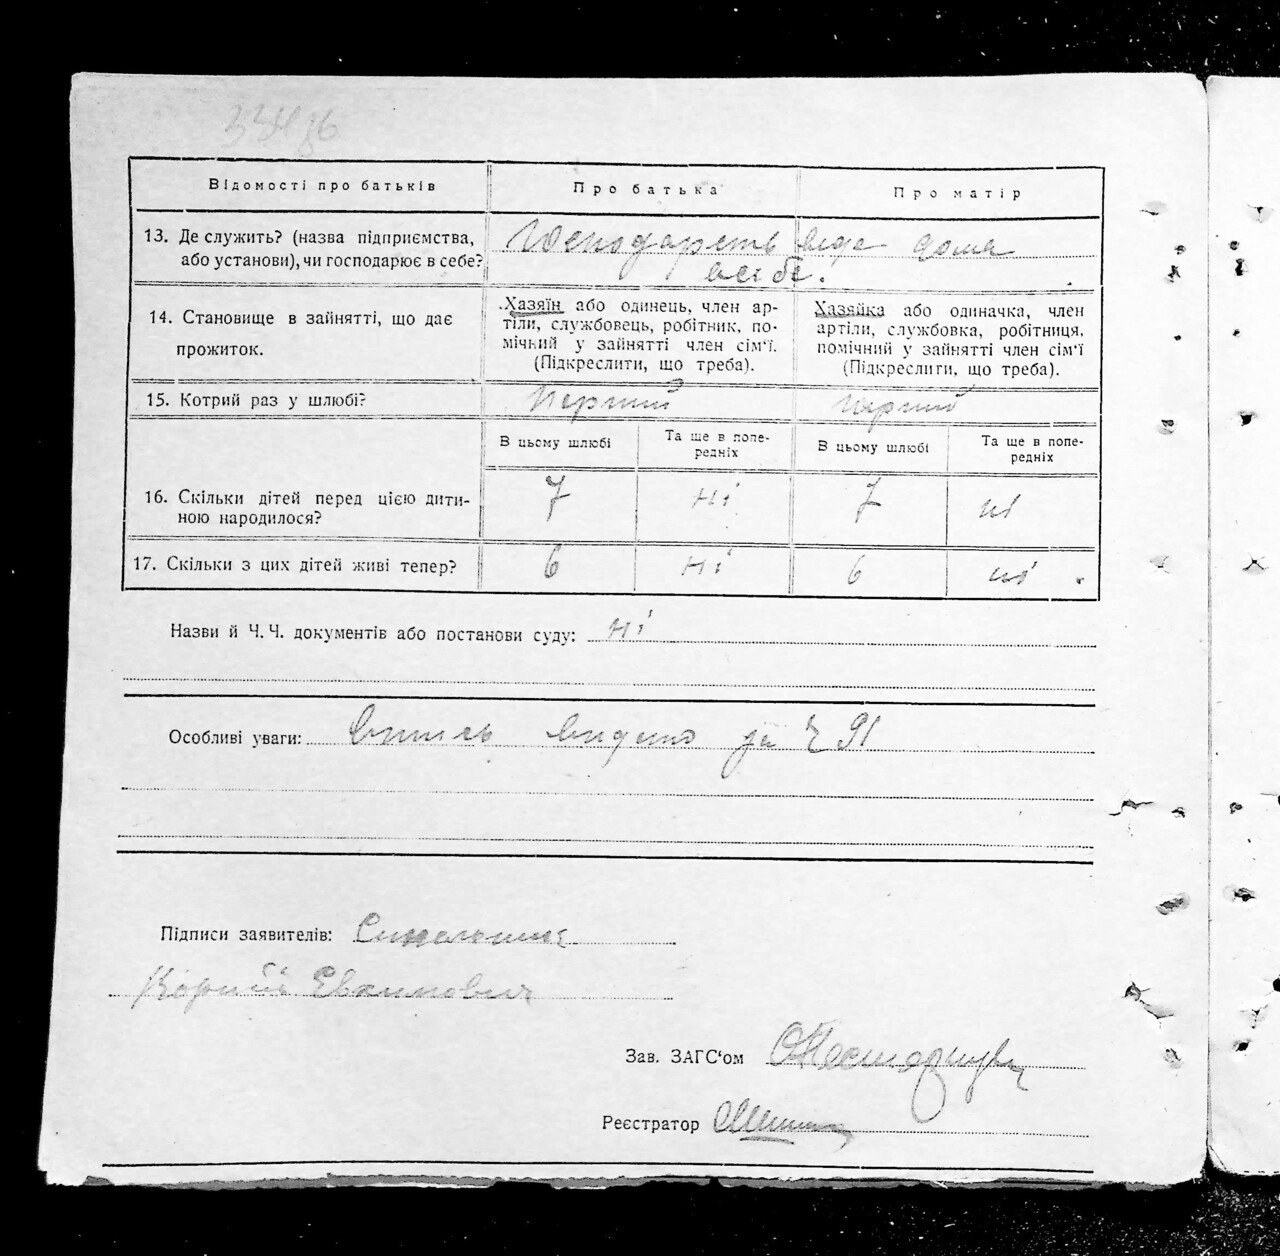 Відомості про батьків
Про батька
Про матір
13. Де служить? (назва підприємства,
або установи), чи господарює в себе?
Господарсть веде дома
в себе.
14. Становище в зайнятті, що дає
прожиток.
Хазяїн або одинець, член ар-
тіли, службовець, робітник, по-
мічний у зайнятті член сім'ї.
(Підкреслити, що треба).
Хазяйка або одиначка, член
артіли, службовка, робітниця,
помічний у зайнятті член сім'ї
(Підкреслити, що треба).
15. Котрий раз у шлюбі?
Перший
перший
В цьому шлюбі
Та ще в попе-
редніх
В цьому шлюбі
Та ще в попе-
редніх
16. Скільки дітей перед цією дити-
ною народилося?
7
ні
7
ні
17. Скільки з цих дітей живі тепер?
6
ні
6
ні
Назви й Ч. Ч. документів або постанови суду: ні
Особливі уваги: Витись видано за Ч 91
Підписи заявителів:
Корній Евхимович
Зав. ЗАГС'ом
Реєстратор